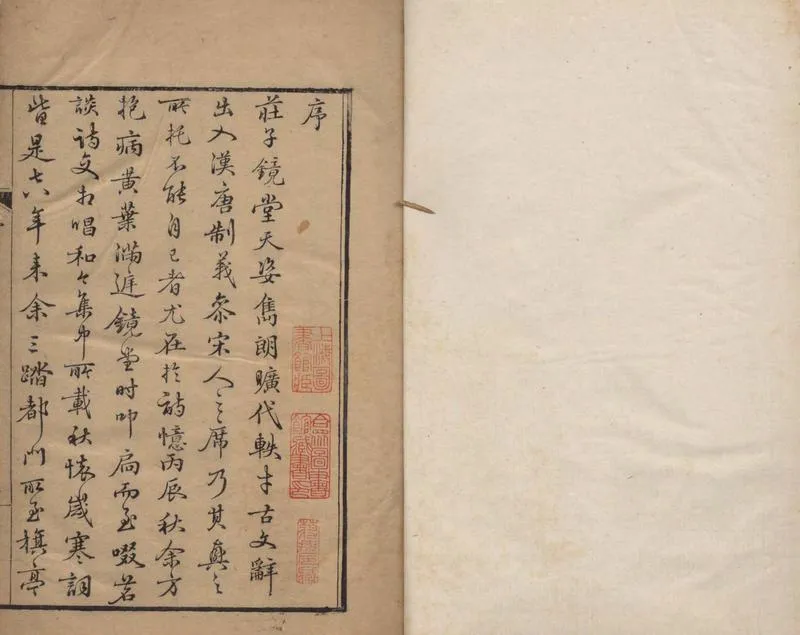 序
莊子鏡堂天姿雋朗曠代軼才古文辭
出入漢唐制義參宋人之席乃其興之
所托不能自已者尤在於詩憶丙辰秋余方
抱病黃葉滿遮鏡堂时叩扃而至啜茗
談詩文相唱和々集中所載秋懷歲寒詞
皆是七八年来余三踏都门所至旗亭
上海圖書館藏